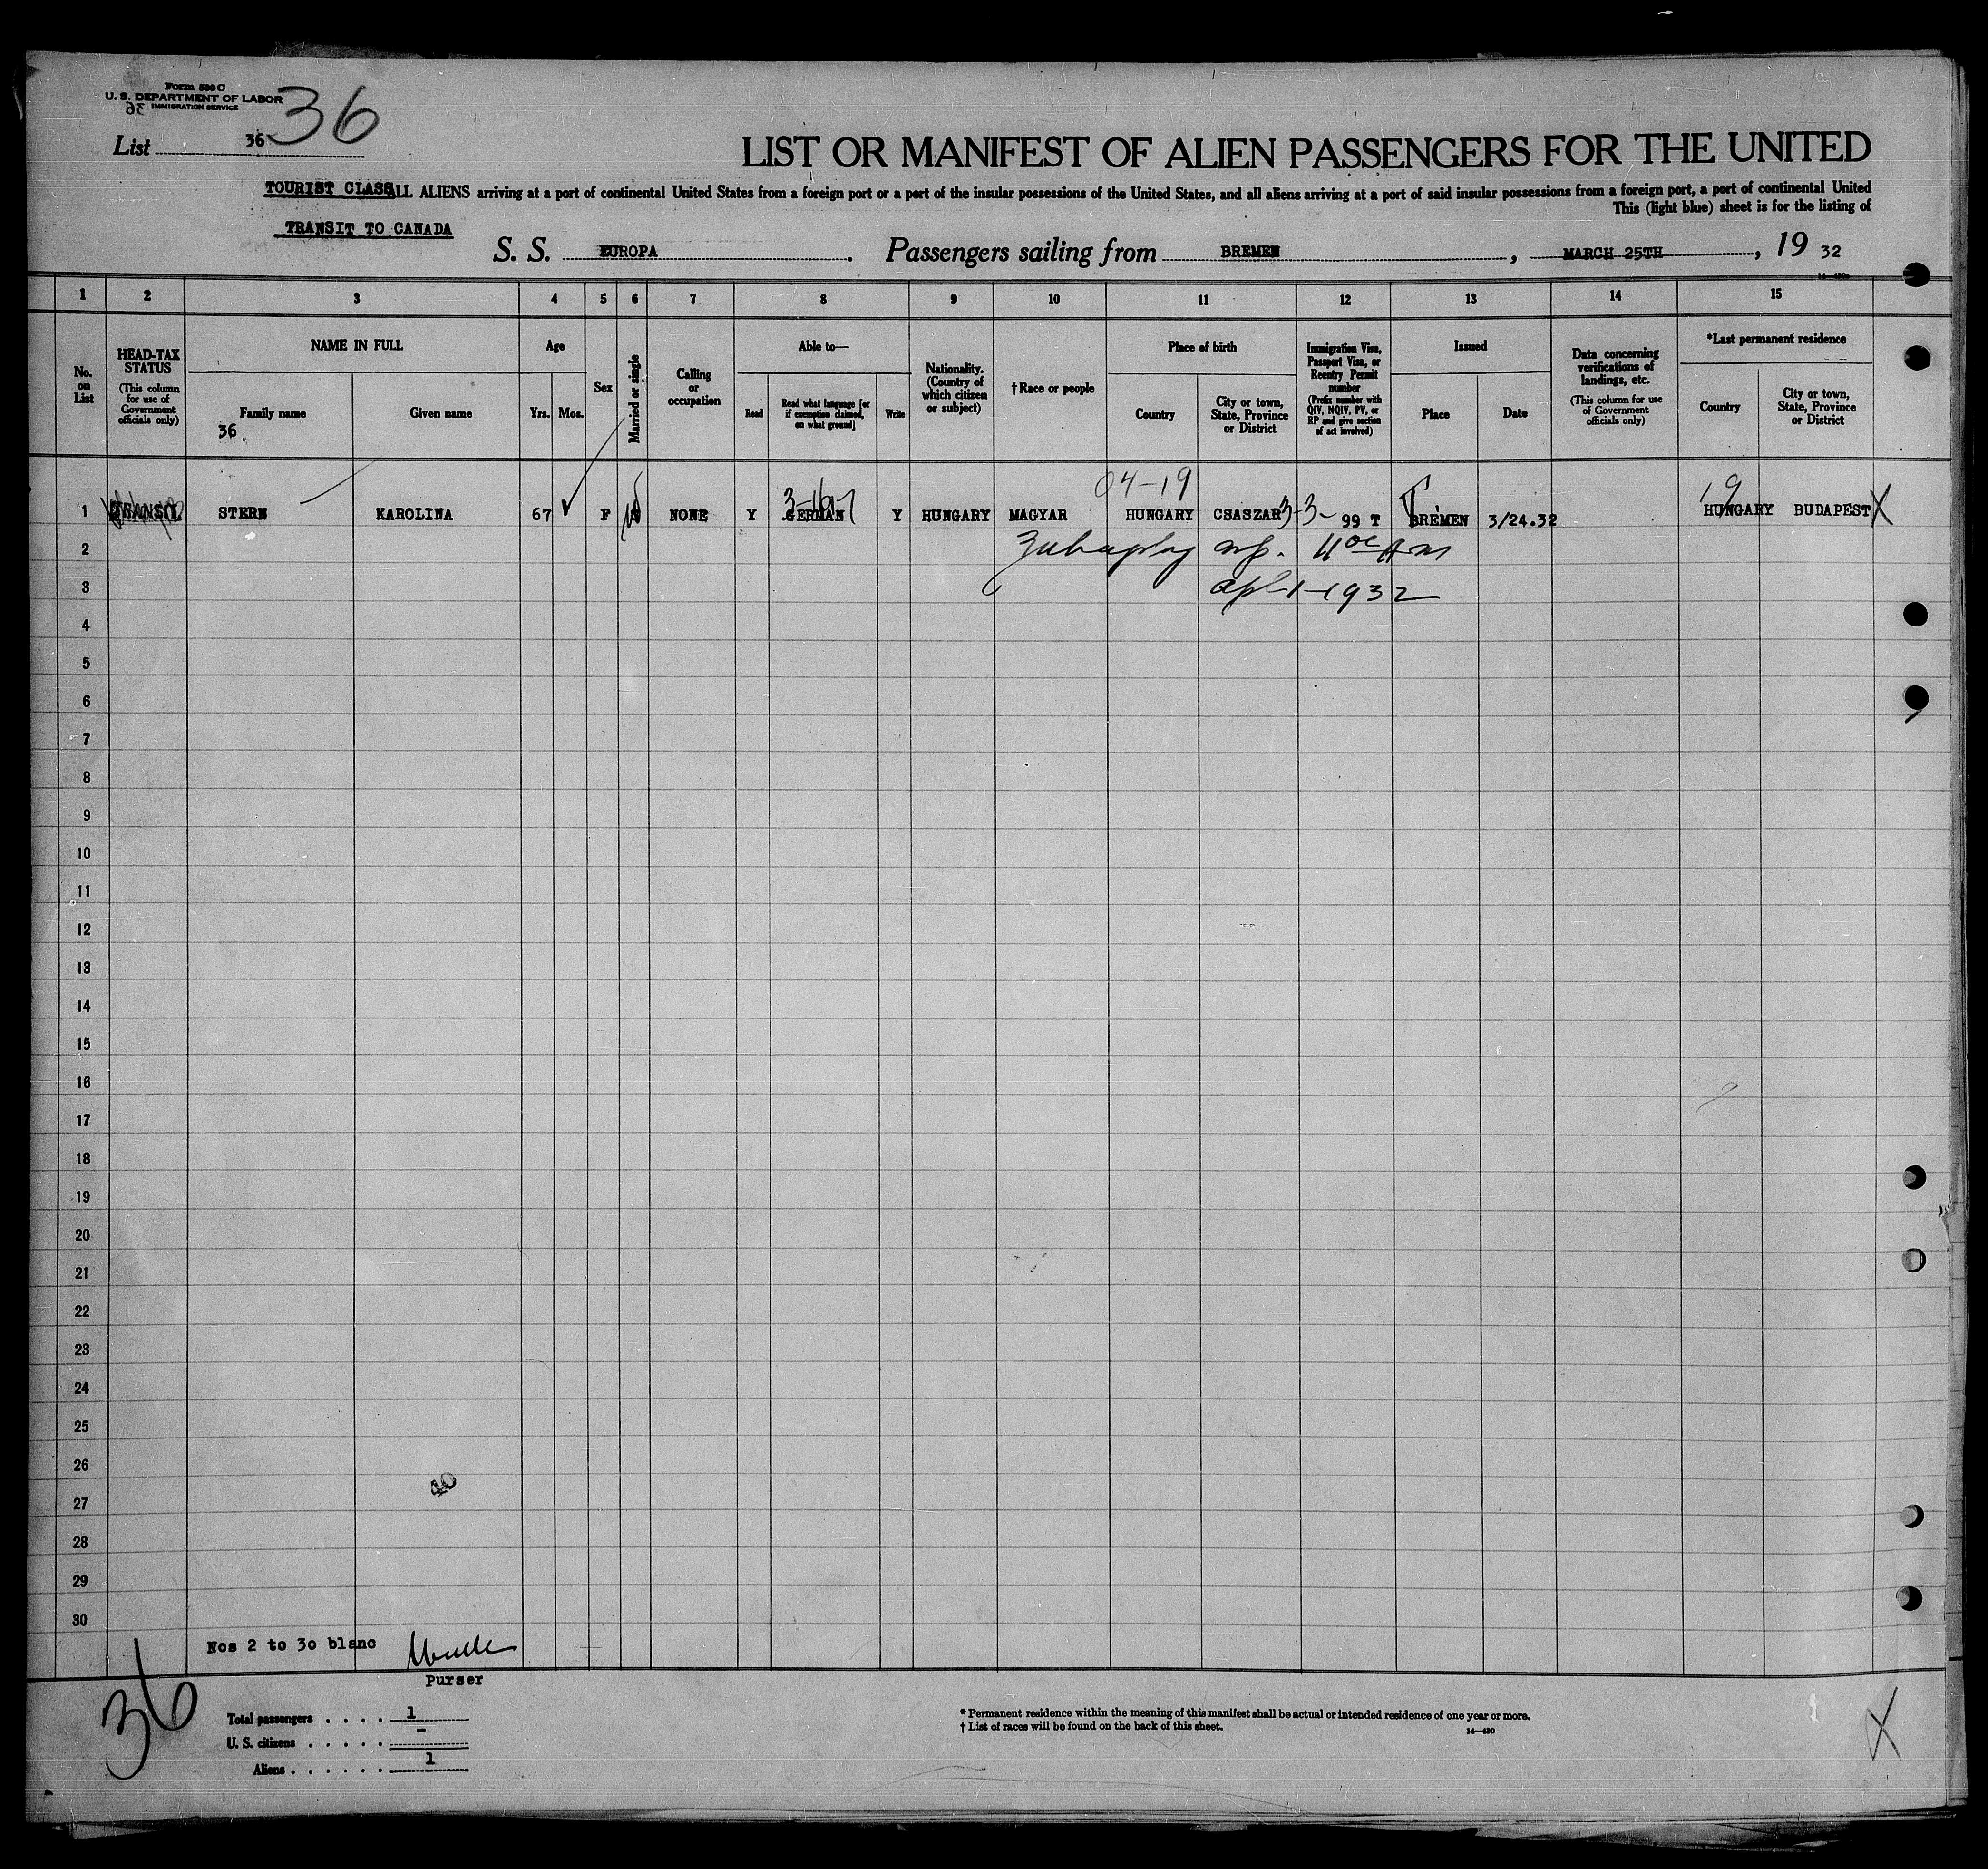 Form 500 C
U. S. DEPARTMENT OF LABOR
IMMIGRATION SERVICE
36
List 36
LIST OR MANIFEST OF ALIEN PASSENGERS FOR THE UNITED
TOURIST CLASS ALL ALIENS arriving at a port of continental United States from a foreign port or a port of the insular possessions of the United States, and all aliens arriving at a port of said insular possessions from a foreign port, a port of continental United
This (light blue) sheet is for the listing of
TRANSIT TO CANADA
S. S. EUROPA. Passengers sailing from BREMEN, MARCH 25TH, 19 32
1 2 3 4 5 6 7 8 9 10 11 12 13 14 15
No. on List
HEAD-TAX STATUS (This column for use of Government officials only)
NAME IN FULL
Family name
36.
Given name
Age
Yrs. Mos.
Sex
Married or single
Calling or occupation
Able to—
Read
Read what language [or if exemption claimed, on what ground]
Write
Nationality. (Country of which citizen or subject)
†Race or people
Place of birth
Country
City or town, State, Province or District
Immigration Visa, Passport Visa, or Reentry Permit number (Prefix number with QIV, NQIV, PV, or RP and give section of act involved)
Issued
Place
Date
Data concerning verifications of landings, etc. (This column for use of Government officials only)
*Last permanent residence
Country
City or town, State, Province or District
04-19
3-16-7
19
1 TRANSIT STERN KAROLINA 67 F NONE Y GERMAN Y HUNGARY MAGYAR HUNGARY CSASZAR 3-3- 99 T BREMEN 3/24.32 HUNGARY BUDAPEST X
2
3 1-1932
4
5
6
7
8
9
10
11
12
13
14
15
16
17
18
19
20
21
22
23
24
25
26
40
27
28
29
30
Nos 2 to 30 blanc
Purser
36
Total passengers . . . . 1
U. S. citizens . . . . . -
Aliens . . . . . . 1
* Permanent residence within the meaning of this manifest shall be actual or intended residence of one year or more.
† List of races will be found on the back of this sheet.
14—430
X